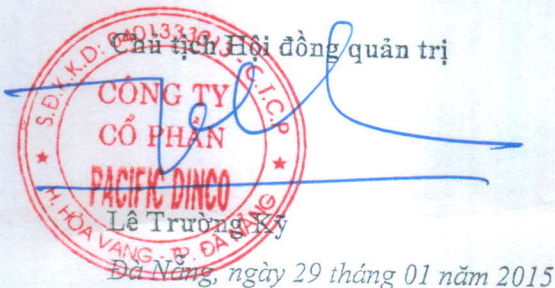 Chủ tịch Hội đồng quản trị
CÔNG TY
CỔ PHẦN
PACIFIC DINCO
H. HÒA VANG - TP. ĐÀ NẴNG
Lê Trường Kỹ
Đà Nẵng, ngày 29 tháng 01 năm 2015